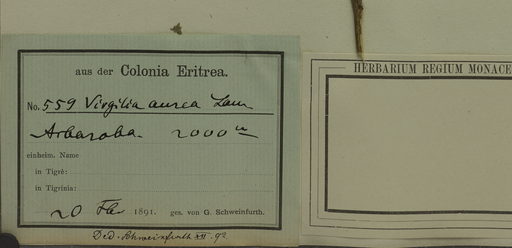 aus der Colonia Eritrea.
No. 559 Virgilia aurea Lam
Arbaroba. 2000 m
einheim. Name
in Tigrè:
in Tigrinia:
20 Feb 1891. ges. von G. Schweinfurth.
Ded. Schweinfurth XII. 92
HERBARIUM REGIUM MONACE